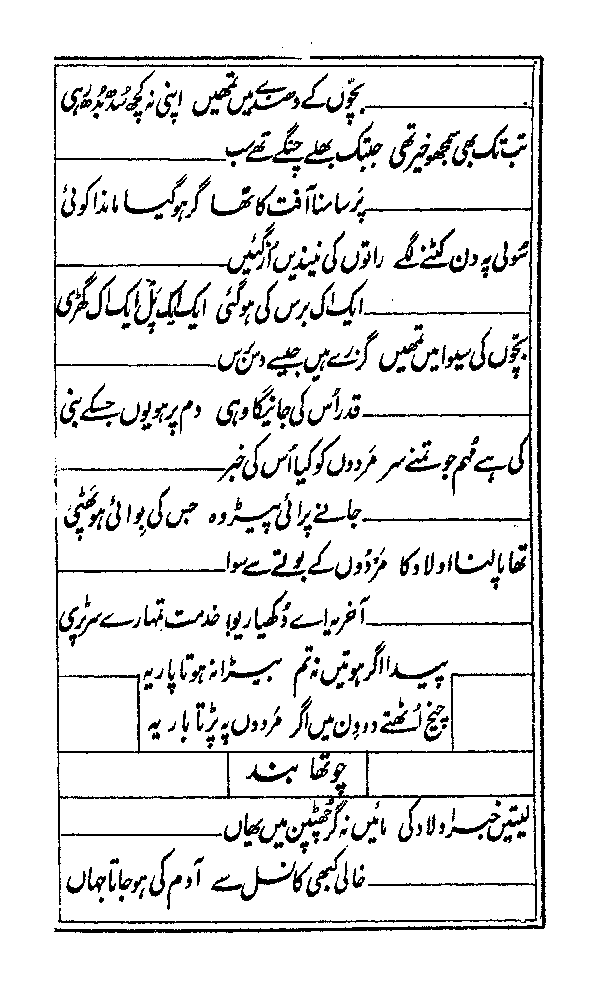 بچّوں کے دھندے میں تمھیں اپنی نہ کچھ سُدھ بُدھ رہی
تب تک ہی سمجھو خیر تھی جبتک بھلے چنگے تھے سب
پر سامنا آفت کا تھا گر ہو گیا ماندا کوئی
سُولی پہ دن کٹنے لگے راتوں کی نیندیں اُڑ گئیں
ایک اک برس کی ہو گئی ایک ایک پَل ایک اک گھڑی
بچّوں کی سیوا میں تمھیں گزرے ہیں جیسے دس برس
قدر اُس کی جانیگا وہی دم پر ہو یوں جسکے بنی
کی ہے مُہم جو تمنے سر مَردوں کو کیا اُس کی خبر
جانے پرائی پیڑ وہ جس کی بِوائی ہو پھَٹی
تھا پالنا اولاد کا مَردُوں کے بوتے سے سوا
آخر یہ اے دُکھیاریو! خدمت تمہارے سر پڑی
پیدا اگر ہوتیں نہ تم بیڑا نہ ہوتا پار یہ
چیخ اُٹھتے دو دِن میں اگر مَردوں پہ پڑتا بار یہ
چوتھا بند
لیتیں خبر اولاد کی مائیں نہ گر چھُٹپن میں یھاں
خالی کبھی کا نسل سے آدم کی ہو جاتا جہاں